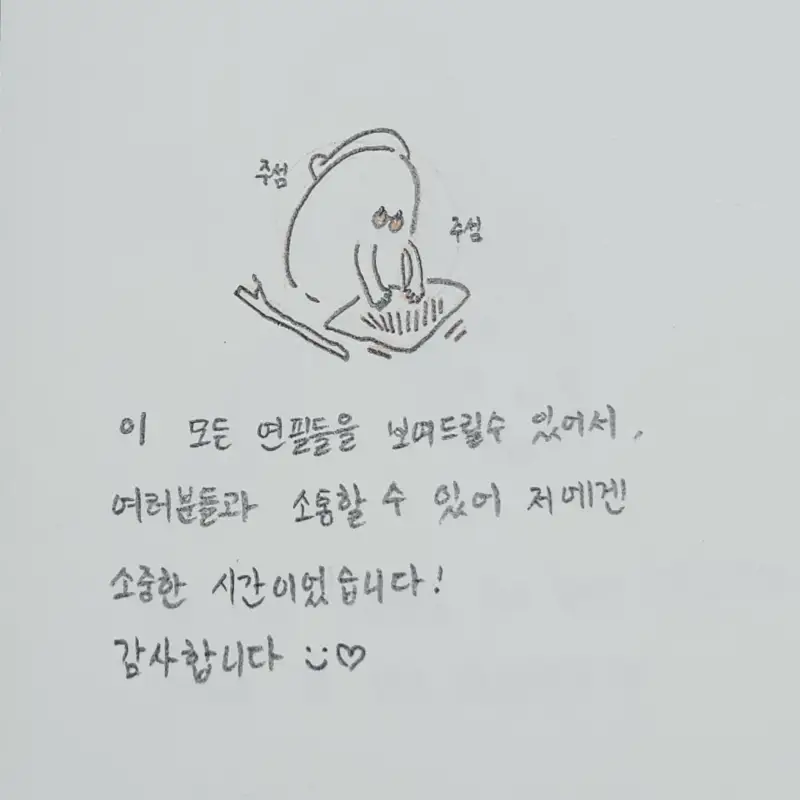 주섬
주섬
이 모든 연필들을 보여드릴수 있어서,
여러분들과 소통할 수 있어 저에겐
소중한 시간이었습니다!
감사합니다 :)♡